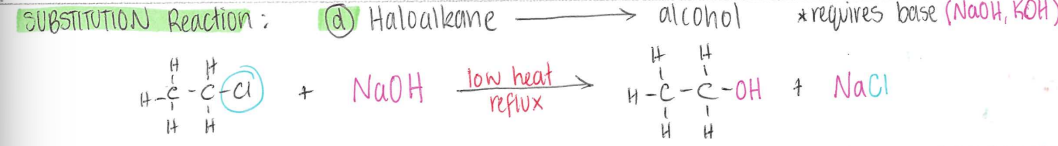 SUBSTITUTION Reaction : (d) Haloalkane → alcohol *requires base (NaOH, KOH)
H H H H
H-C-C-Cl + NaOH low heat reflux → H-C-C-OH + NaCl
H H H H